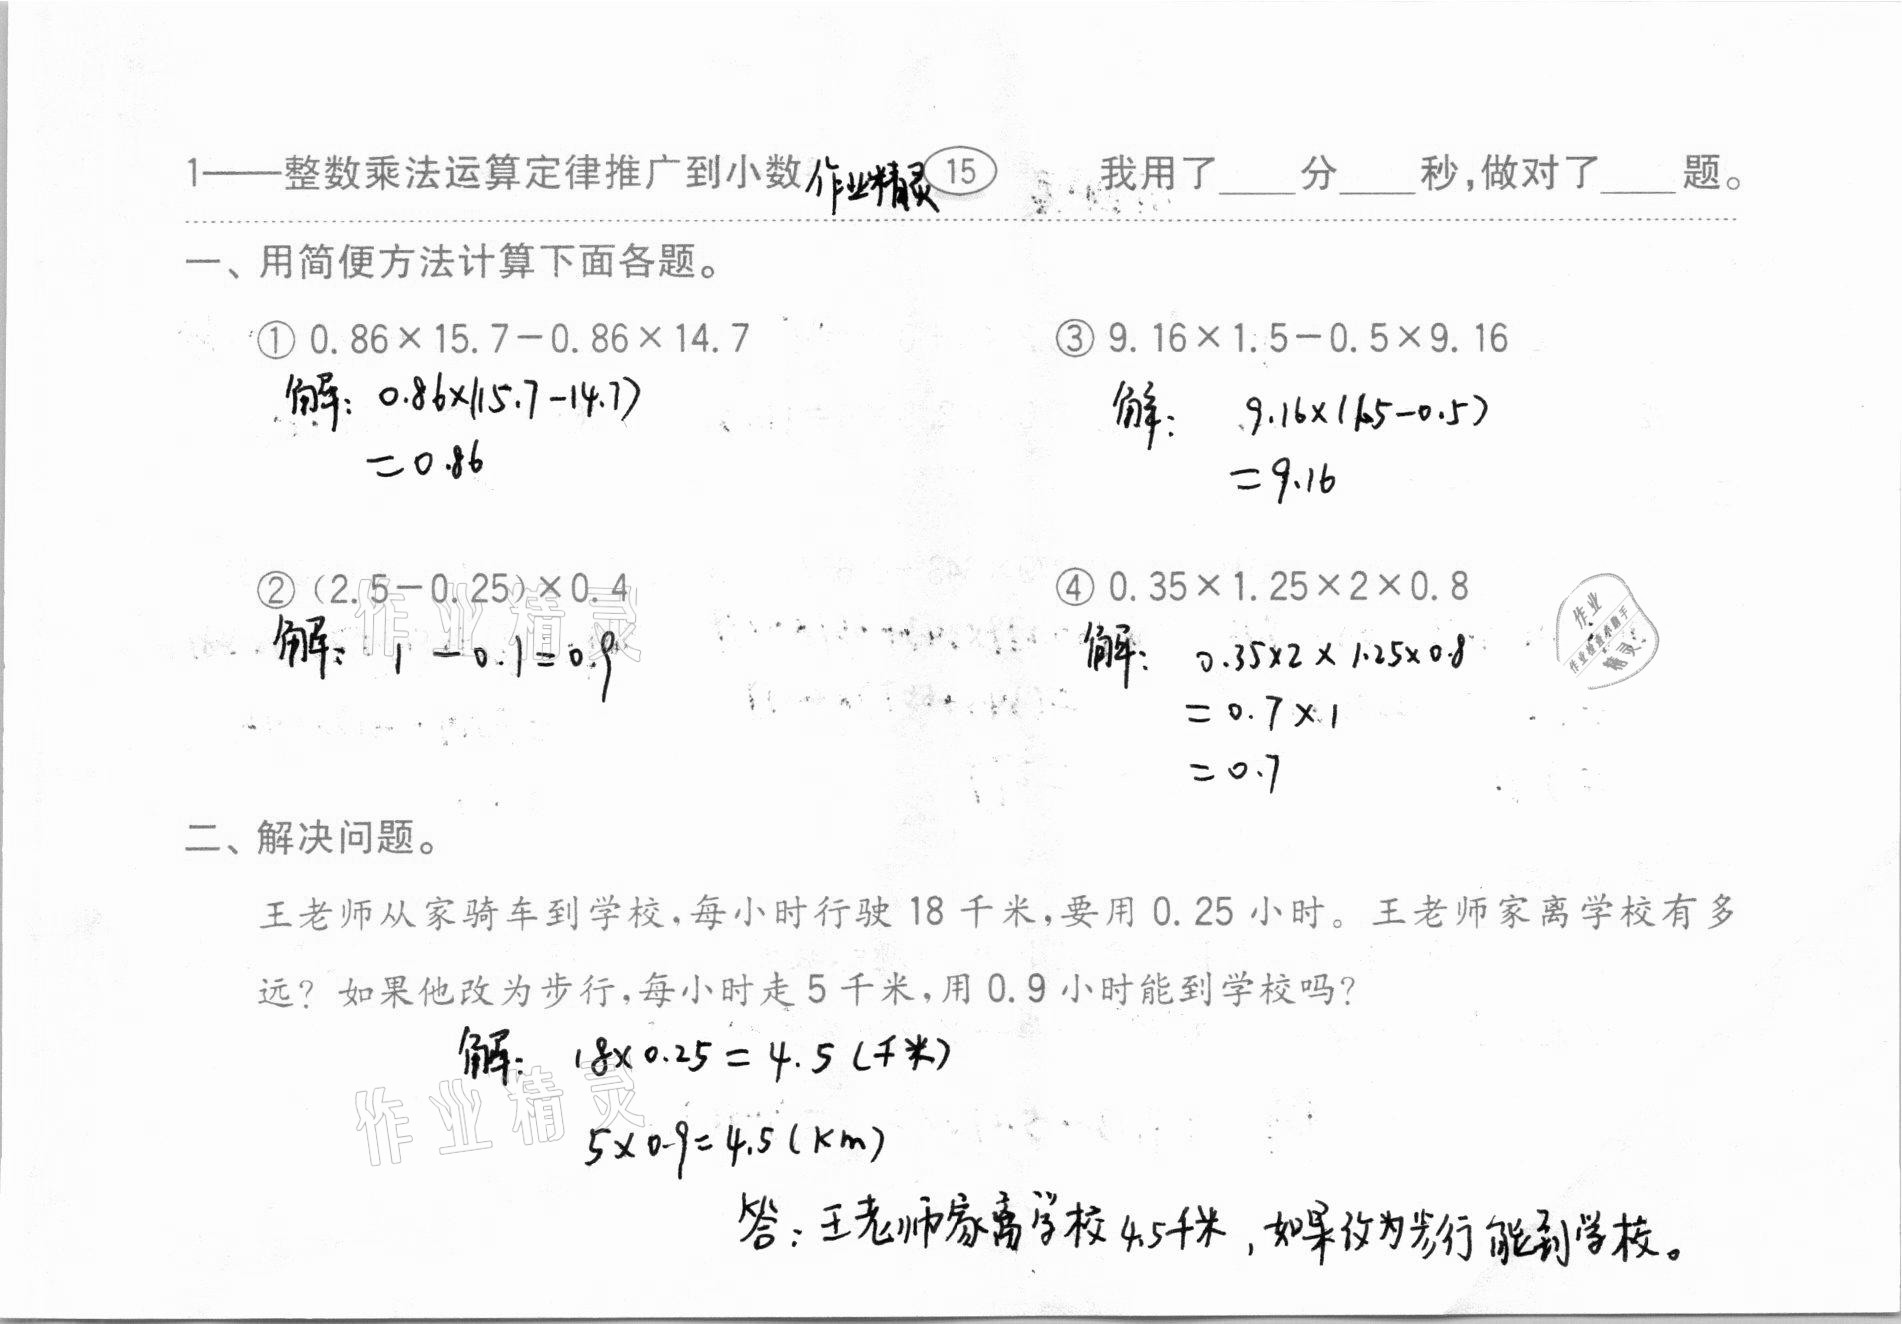 1——整数乘法运算定律推广到小数 作业精灵 15 我用了____分____秒,做对了____题。
一、用简便方法计算下面各题。
① 0.86×15.7-0.86×14.7 ③ 9.16×1.5-0.5×9.16
解: 0.86×(15.7-14.7) 解: 9.16×(1.5-0.5)
=0.86 =9.16
② (2.5-0.25)×0.4 ④ 0.35×1.25×2×0.8
作业精灵
作业
作业检查小助手
精灵
解: 1-0.1=0.9 解: 0.35×2×1.25×0.8
=0.7×1
=0.7
二、解决问题。
王老师从家骑车到学校,每小时行驶 18 千米,要用 0.25 小时。王老师家离学校有多
远?如果他改为步行,每小时走 5 千米,用 0.9 小时能到学校吗?
解: 18×0.25=4.5(千米)
作业精灵
5×0.9=4.5(Km)
答:王老师家离学校4.5千米,如果改为步行能到学校。